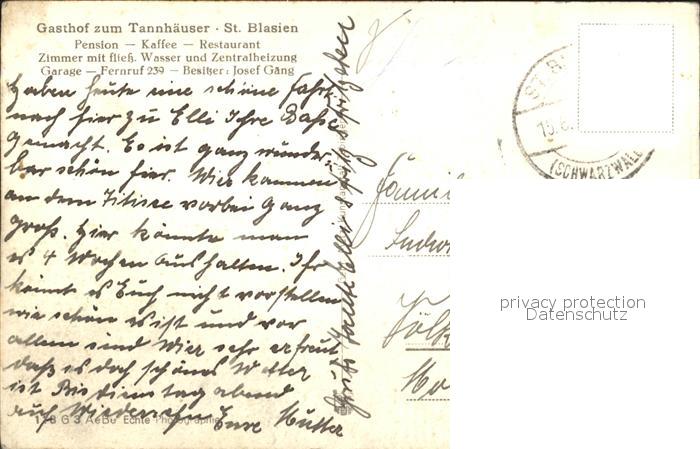 Gasthof zum Tannhäuser · St. Blasien
Pension — Kaffee — Restaurant
Zimmer mit fließ. Wasser und Zentralheizung
Garage — Fernruf 239 — Besitzer: Josef Gäng
Haben heute eine schöne Fahrt
nach hier zu Elli Ihre Base
gemacht. Es ist ganz wunder-
bar schön hier. Wir kamen
an dem Titisee vorbei ganz
groß. Hier könnte man
es 4 Wochen aushalten. Ihr
könnt es Euch nicht vorstellen
wie schön es ist und vor
allem sind Wir sehr erfreut
daß es doch schönes Wetter
ist Bis dienstag abend
auf Wiedersehn Eure Mutter
178 G 3 AeBo Echte Photographie
Elli
ST. B
15.6.
(SCHWARZWALD
Famil
Ludw
privacy protection
Datenschutz